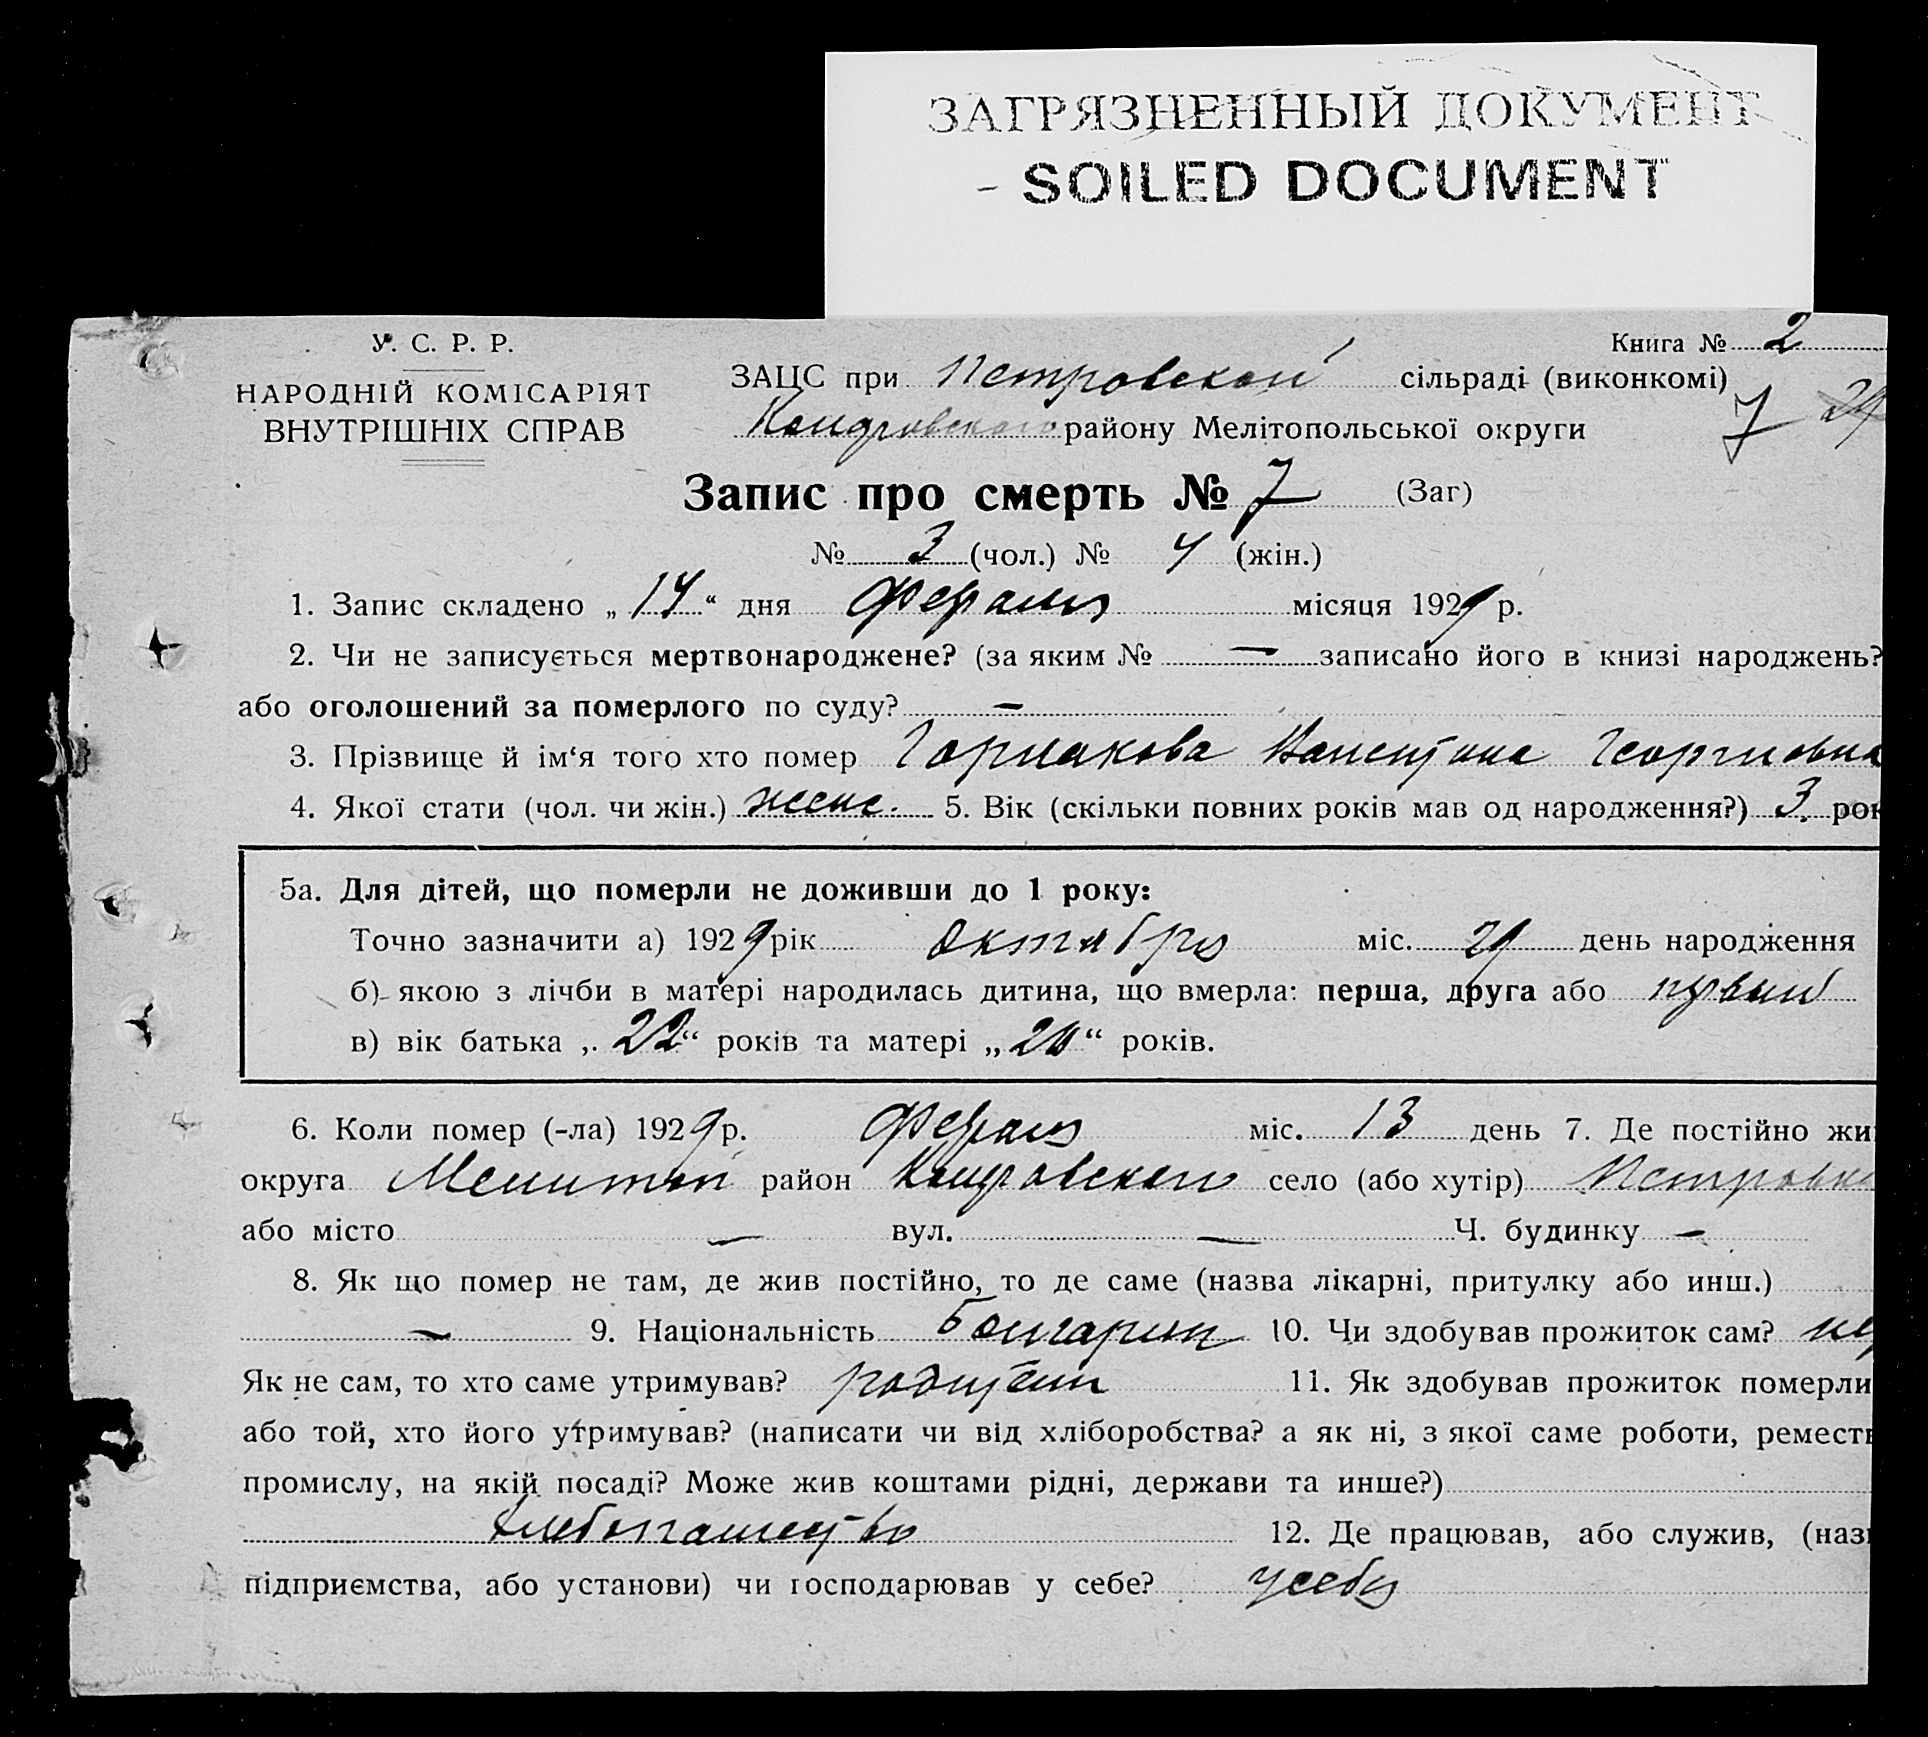 ЗАГРЯЗНЕННЫЙ ДОКУМЕНТ
- SOILED DOCUMENT
У. С. Р. Р.
НАРОДНІЙ КОМІСАРІЯТ
ВНУТРІШНІХ СПРАВ
Книга № 2
ЗАЦС при Петровской сільраді (виконкомі)
району Мелітопольської округи
7 29
Запис про смерть № 7 (Заг)
№ 3 (чол.) № 4 (жін.)
1. Запис складено „ 14 “ дня місяця 1929 р.
2. Чи не записується мертвонароджене? (за яким № — записано його в книзі народжень?
або оголошений за померлого по суду? —
3. Прізвище й ім‘я того хто помер Валентина Георгиовна
4. Якої стати (чол. чи жін.) женс. 5. Вік (скільки повних років мав од народження?) 3. рок
5а. Для дітей, що померли не доживши до 1 року:
Точно зазначити а) 1929 рік октября міс. 29 день народження
б) якою з лічби в матері народилась дитина, що вмерла: перша, друга або
в) вік батька „ 22 “ років та матері „ 20 “ років.
6. Коли помер (-ла) 1929 р. міс. 13 день 7. Де постійно жи
округа район село (або хутір)
або місто — вул. — Ч. будинку —
8. Як що помер не там, де жив постійно, то де саме (назва лікарні, притулку або инш.)
— 9. Національність 10. Чи здобував прожиток сам?
Як не сам, то хто саме утримував? родители 11. Як здобував прожиток померли
або той, хто його утримував? (написати чи від хліборобства? а як ні, з якої саме роботи, реместв
промислу, на якій посаді? Може жив коштами рідні, держави та инше?)
хлебопашество 12. Де працював, або служив, (назв
підприємства, або установи) чи господарював у себе? у себя